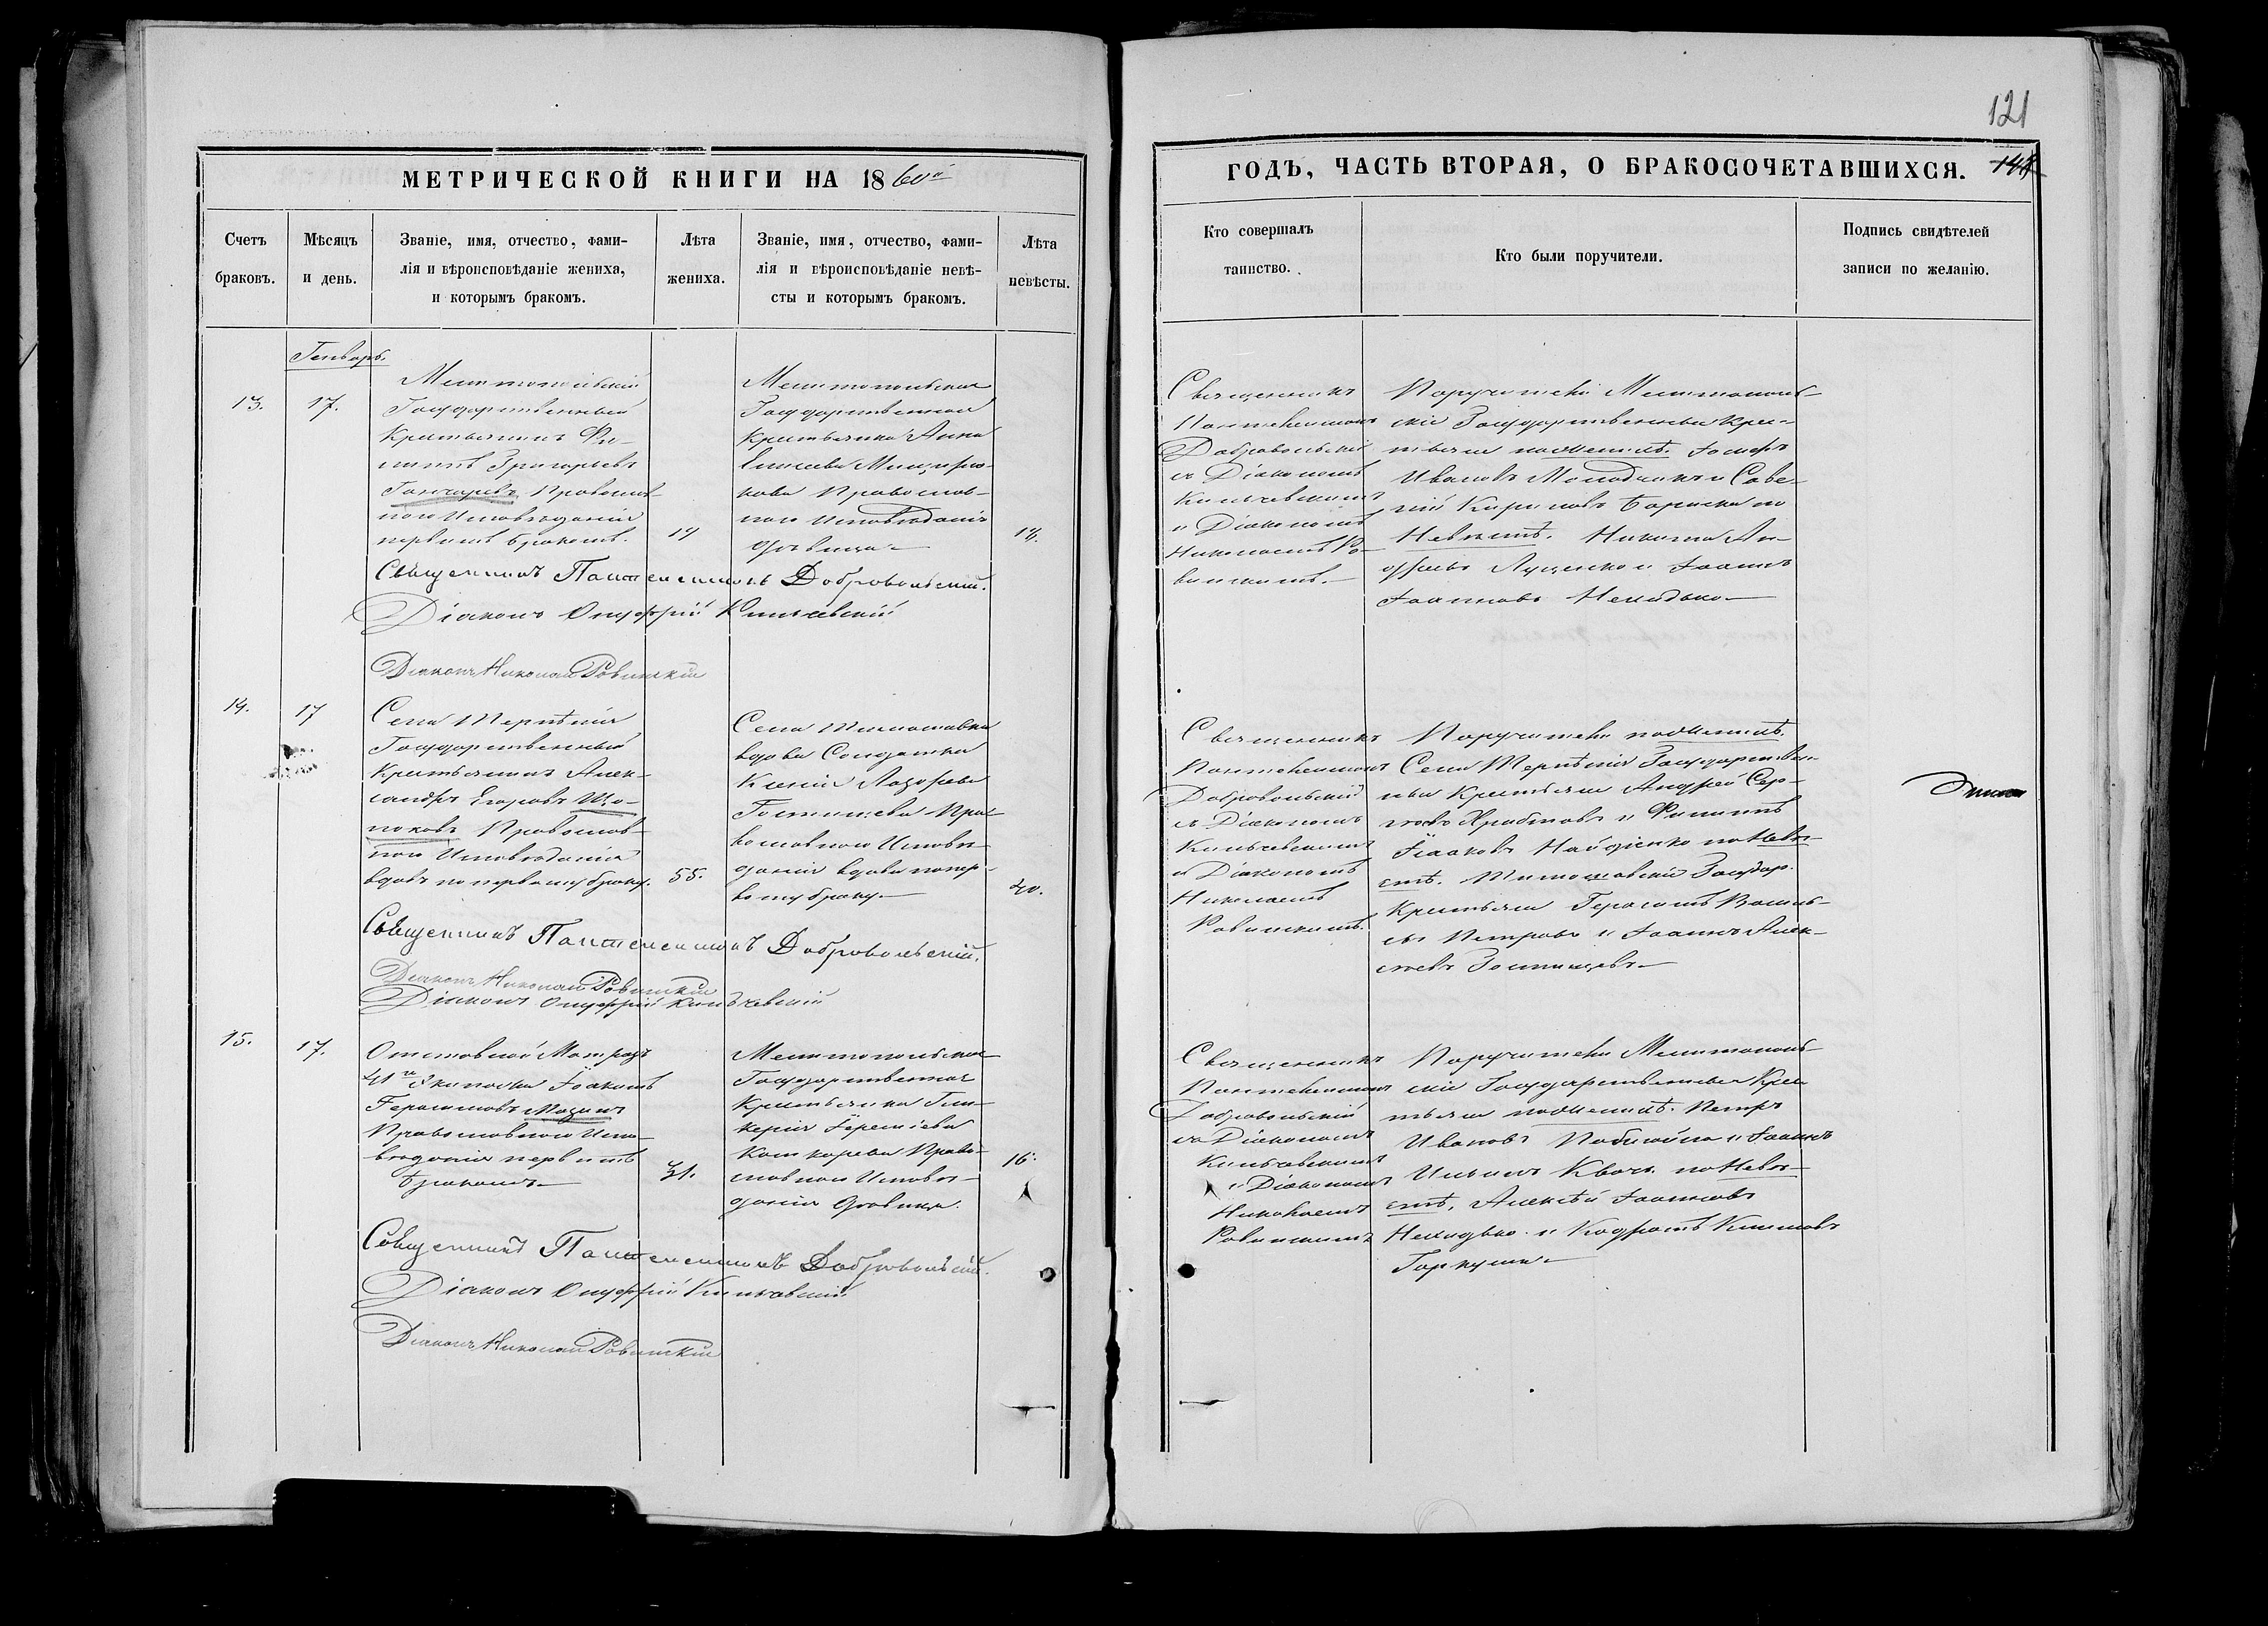 121
МЕТРИЧЕСКОЙ КНИГИ НА 1860й
ГОДЪ, ЧАСТЬ ВТОРАЯ, О БРАКОСОЧЕТАВШИХСЯ.
Счетъ
браковъ.
Мѣсяцъ
и день.
Званіе, имя, отчество, фами-
лія и вѣроисповѣданіе жениха,
и которымъ бракомъ.
Лѣта
жениха.
Званіе, имя, отчество, фами-
лія и вѣроисповѣданіе невѣ-
сты и которымъ бракомъ.
Лѣта
невѣсты.
Кто совершалъ
таинство.
Кто были поручители.
Подпись свидѣтелей
записи по желанію.
Генварь.
13.
17.
Мелитопольскій
Государственный
Крестьянинъ Фи-
липпъ Григорьевъ
Гончаровъ Православ-
наго Исповѣданія
первымъ бракомъ.
19
Мелитопольская
Государственная
Крестьянка Анна
Елисеева
Православ-
наго Исповѣданія
дѣвица
18.
Священникъ
Пантелеимонъ
Добровольскій
съ Діакономъ
Кильчевскимъ
и Діакономъ
Николаемъ Ро-
винскимъ.
Поручители Мелитополь-
скіе Государственные Крес-
тьяне по Женихѣ. Іосифъ
Ивановъ и Саве-
лій Кириловъ по
Невѣстѣ. Никита Ан-
дреевъ Луценко и Іоаннъ
Іоанновъ
Священникъ Пантелеимонъ Добровольскій.
Діаконъ Онуфрій Кильчевскій
Діаконъ Николай Ровинскій
14.
17
Села Терпѣнія
Государственный
Крестьянинъ Алек-
сандръ Егоровъ
Православ-
наго Исповѣданія
вдовъ по первому браку.
55.
Села Тимошовки
вдова Солдатка
Ксенія Лазарева
Гостищева Пра-
вославнаго Исповѣ-
данія вдова по пер-
вому браку
40.
Священникъ
Пантелеимонъ
Добровольскій
съ Діакономъ
Кильчевскимъ
и Діакономъ
Николаемъ
Ровинскимъ.
Поручители по Женихѣ.
Села Терпѣнія Государствен-
ные Крестьяне Андрей Сер-
гѣевъ и Филиппъ
Іаковъ Найденко по Невѣ-
стѣ. Тимошовскіе Государ.
Крестьяне Герасимъ Василь-
евъ Петровъ и Іоаннъ Алек-
сѣевъ Гостищевъ
Священникъ Пантелеимонъ Добровольскій.
Діаконъ Николай Ровинскій
Діаконъ Онуфрій Кильчевскій
15.
17.
Отставной Матрозъ
41го Экипажа Іоакимъ
Герасимовъ Мазинъ
Православнаго Испо-
вѣданія первымъ
бракомъ
31.
Мелитопольская
Государственная
Крестьянка Гли-
керія Іереміева
Право-
славнаго Исповѣ-
данія дѣвица.
16.
Священникъ
Пантелеимонъ
Добровольскій
съ Діакономъ
Кильчевскимъ
и Діакономъ
Николаемъ
Ровинскимъ
Поручители Мелитополь-
скіе Государственные Крес
тьяне по Женихѣ. Петръ
Ивановъ и Іоаннъ
Ильинъ Квачъ. по Невѣ-
стѣ. Алексѣй Іоанновъ
и Кодратъ Климовъ
Гаркуша
Священникъ Пантелеимонъ Добровольскій.
Діаконъ Онуфрій Кильчевскій
Діаконъ Николай Ровинскій